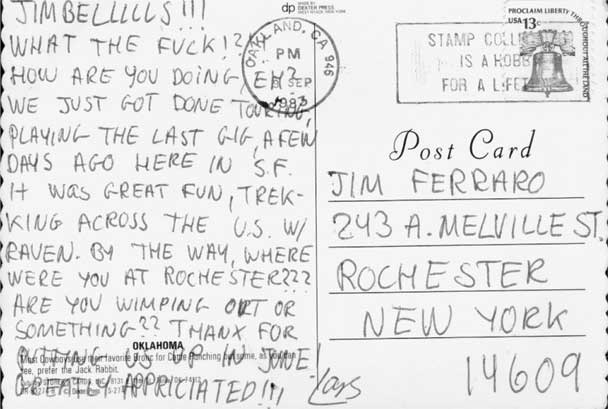 JIMBELLLLLS!!!
WHAT THE FUCK!?!
HOW ARE YOU DOING EH?
WE JUST GOT DONE TOURING,
PLAYING THE LAST GIG, A FEW
DAYS AGO HERE IN S.F.
IT WAS GREAT FUN, TREK-
KING ACROSS THE U.S. W/
RAVEN. BY THE WAY, WHERE
WERE YOU AT ROCHESTER???
ARE YOU WIMPING OUT OR
SOMETHING?? THANX FOR
PUTTING US UP IN JUNE
GREATLY APPRICIATED!!!
Lars
OKLAHOMA
Most Cowboys use their favorite Bronc for Cattle Ranching but some, as you can
see, prefer the Jack Rabbit.
dp
MADE BY
DEXTER PRESS
WEST NYACK, NEW YORK
OAKLAND, CA 946
PM
SEP
1983
STAMP COLL
IS A HOBB
FOR A LIFET
PROCLAIM LIBERTY THROUGHOUT ALL THE LAND
USA 13c
Post Card
JIM FERRARO
243 A. MELVILLE ST.
ROCHESTER
NEW YORK
14609